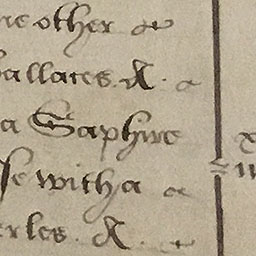 ne other
allates &
a Saphire
se with a
erles &